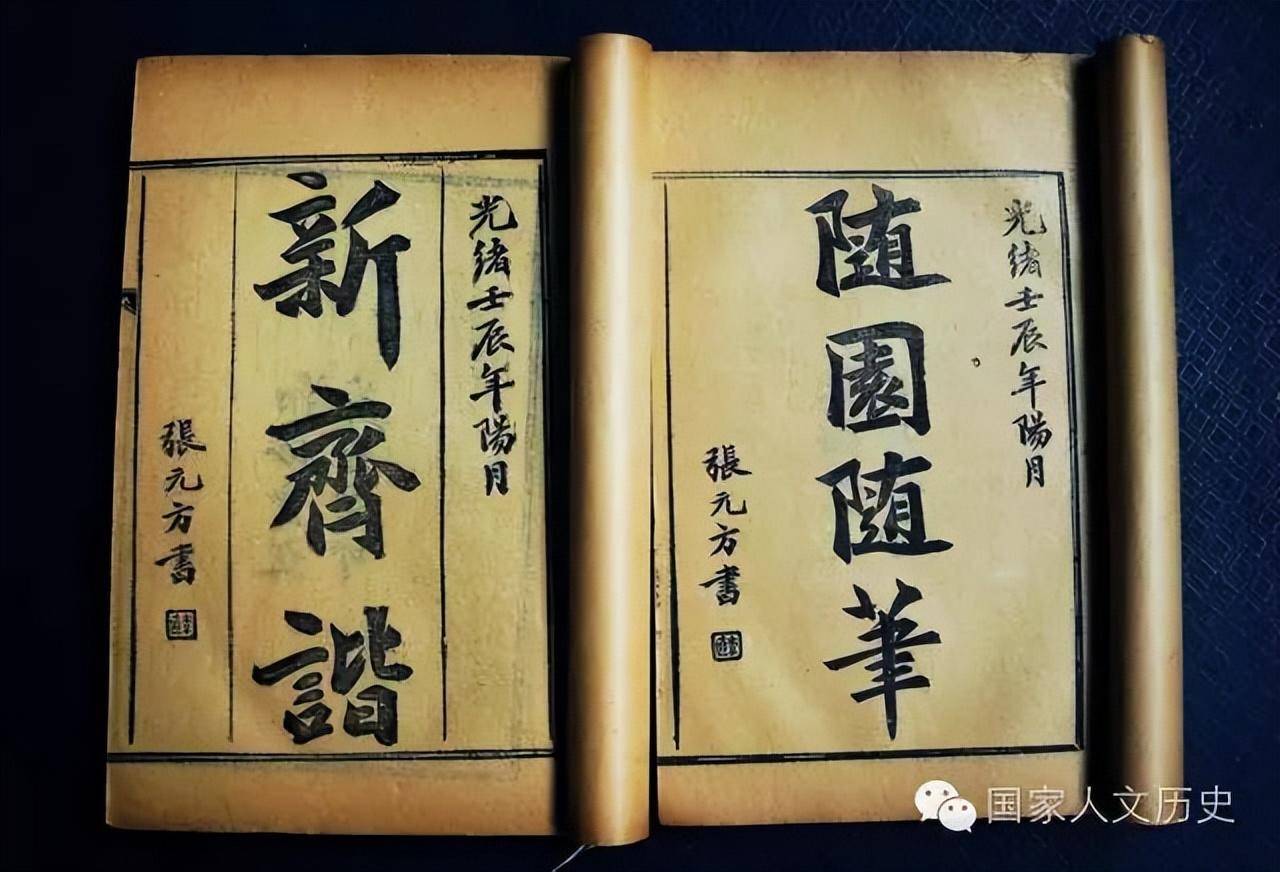 光緒壬辰年陽月
随園随筆
張元方書
光緒壬辰年陽月
新齊諧
張元方書
国家人文历史